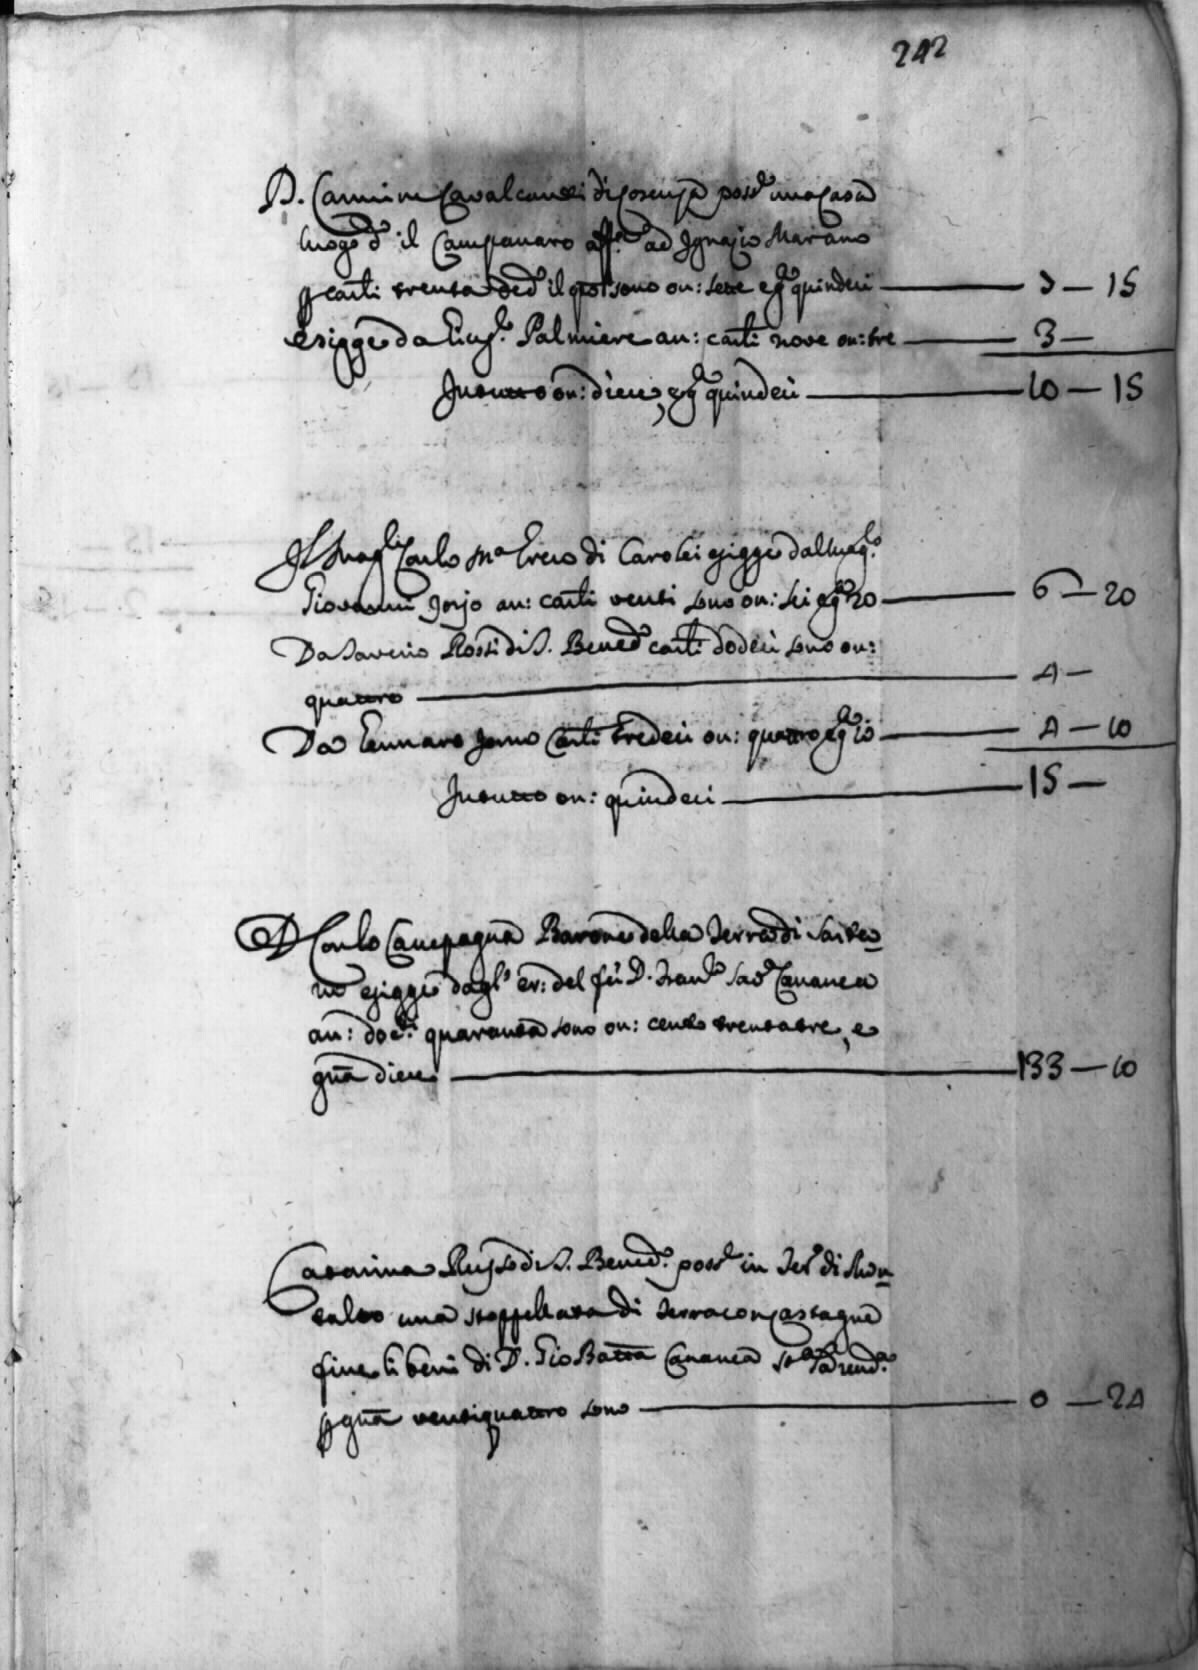 242
D. Carmine Cavalcanti di Cosenza poss.e una casa
luogo d.o il Campanaro aff.ta ad Ignazio Marano
p carli trenta ded.o il sono on: sette e g.a quindeci — 7 — 15
esigge da Palmiere an: carli nove on: tre — 3 —
In tutto on: diece, e g.a quindeci — 10 — 15
Il Mag.co Carlo M.a Ercio di Carolei esigge dal Mag.co
Giovanni an: carli venti sono on: sei e g.a 20 — 6 — 20
Da Saverio di S. Bened.o carli dodeci sono on:
quattro — 4 —
Da Gennaro Carli tredeci on: quattro e g.a 10 — 4 — 10
In tutto on: quindeci — 15 —
D. Carlo Campagna Barone della Terra di Sarte
no esigge dagl' er: del fù D. Fran.co Sav.o Cananea
an: doc.ti quaranta sono on: cento trentatre, e
gnã diece — 133 — 10
Catarina Russo di S. Bened.o poss.e in Ter.o di Mon
talto una stoppellata di terra con castagne
fine li beni di D. Gio Batta Cananea st.a rend.a
p gnã ventiquattro sono — 0 — 24